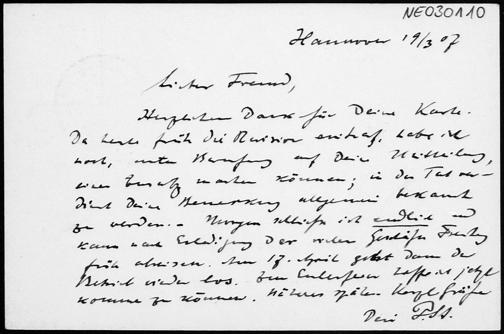 NE030110
Hannover 19/3 07
Lieber Freund,
Herzlichen Dank für Deine Karte.
Da heute früh die Revision eintraf, habe ich
noch, unter Berufung auf Deine Mitteilung,
einen Zusatz machen können; in der Tat ver-
dient Deine Bemerkung allgemein bekannt
zu werden. - Morgen schließe ich endlich und
kann nach Erledigung der vielen Geschäfte Freitag
früh abreisen. Am 17. April geht dann der
Betrieb wieder los. Zum hoffe ich jetzt
kommen zu können. Näheres später. Herzl. Grüße
Dein F.St.